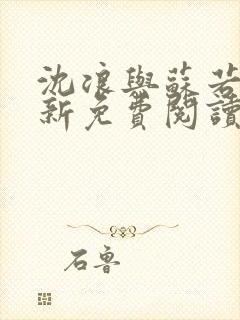 沈浪與蘇若
新免費閱讀
石魯